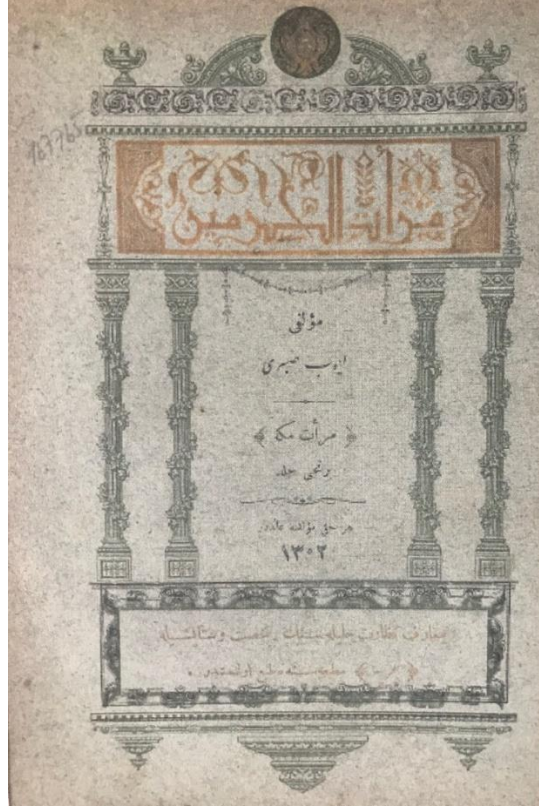 167765
مرآة الحرمین
مؤلفی
ایوب صبری
﴿ مرأت مکه ﴾
نجی جلد
هر حقی مؤلفنه عائددر
١٣٠٢
معارف نظارت جلیله سنك رخصت و
طبع اولنمشدر